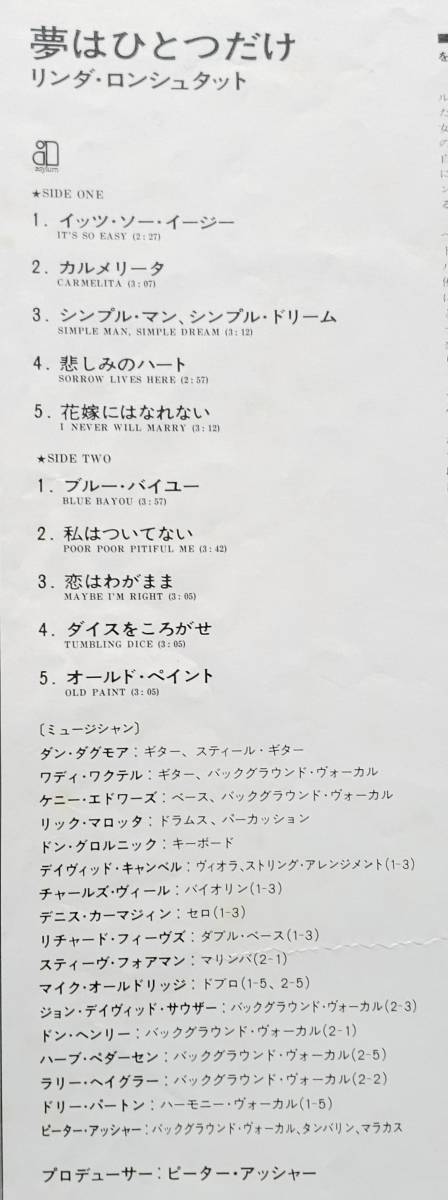 夢はひとつだけ
リンダ・ロンシュタット
asylum
★SIDE ONE
1. イッツ・ソー・イージー
IT'S SO EASY (2:27)
2. カルメリータ
CARMELITA (3:07)
3. シンプル・マン、シンプル・ドリーム
SIMPLE MAN, SIMPLE DREAM (3:12)
4. 悲しみのハート
SORROW LIVES HERE (2:57)
5. 花嫁にはなれない
I NEVER WILL MARRY (3:12)
★SIDE TWO
1. ブルー・バイユー
BLUE BAYOU (3:57)
2. 私はついてない
POOR POOR PITIFUL ME (3:42)
3. 恋はわがまま
MAYBE I'M RIGHT (3:05)
4. ダイスをころがせ
TUMBLING DICE (3:05)
5. オールド・ペイント
OLD PAINT (3:05)
〔ミュージシャン〕
ダン・ダグモア：ギター、スティール・ギター
ワディ・ワクテル：ギター、バックグラウンド・ヴォーカル
ケニー・エドワーズ：ベース、バックグラウンド・ヴォーカル
リック・マロッタ：ドラムス、パーカッション
ドン・グロルニック：キーボード
デイヴィッド・キャンベル：ヴィオラ、ストリング・アレンジメント(1-3)
チャールズ・ヴィール：バイオリン(1-3)
デニス・カーマジィン：セロ(1-3)
リチャード・フィーヴズ：ダブル・ベース(1-3)
スティーヴ・フォアマン：マリンバ(2-1)
マイク・オールドリッジ：ドブロ(1-5、2-5)
ジョン・デイヴィッド・サウザー：バックグラウンド・ヴォーカル(2-3)
ドン・ヘンリー：バックグラウンド・ヴォーカル(2-1)
ハーブ・ペダーセン：バックグラウンド・ヴォーカル(2-5)
ラリー・ヘイグラー：バックグラウンド・ヴォーカル(2-2)
ドリー・パートン：ハーモニー・ヴォーカル(1-5)
ピーター・アッシャー：バックグラウンド・ヴォーカル、タンバリン、マラカス
プロデューサー：ピーター・アッシャー